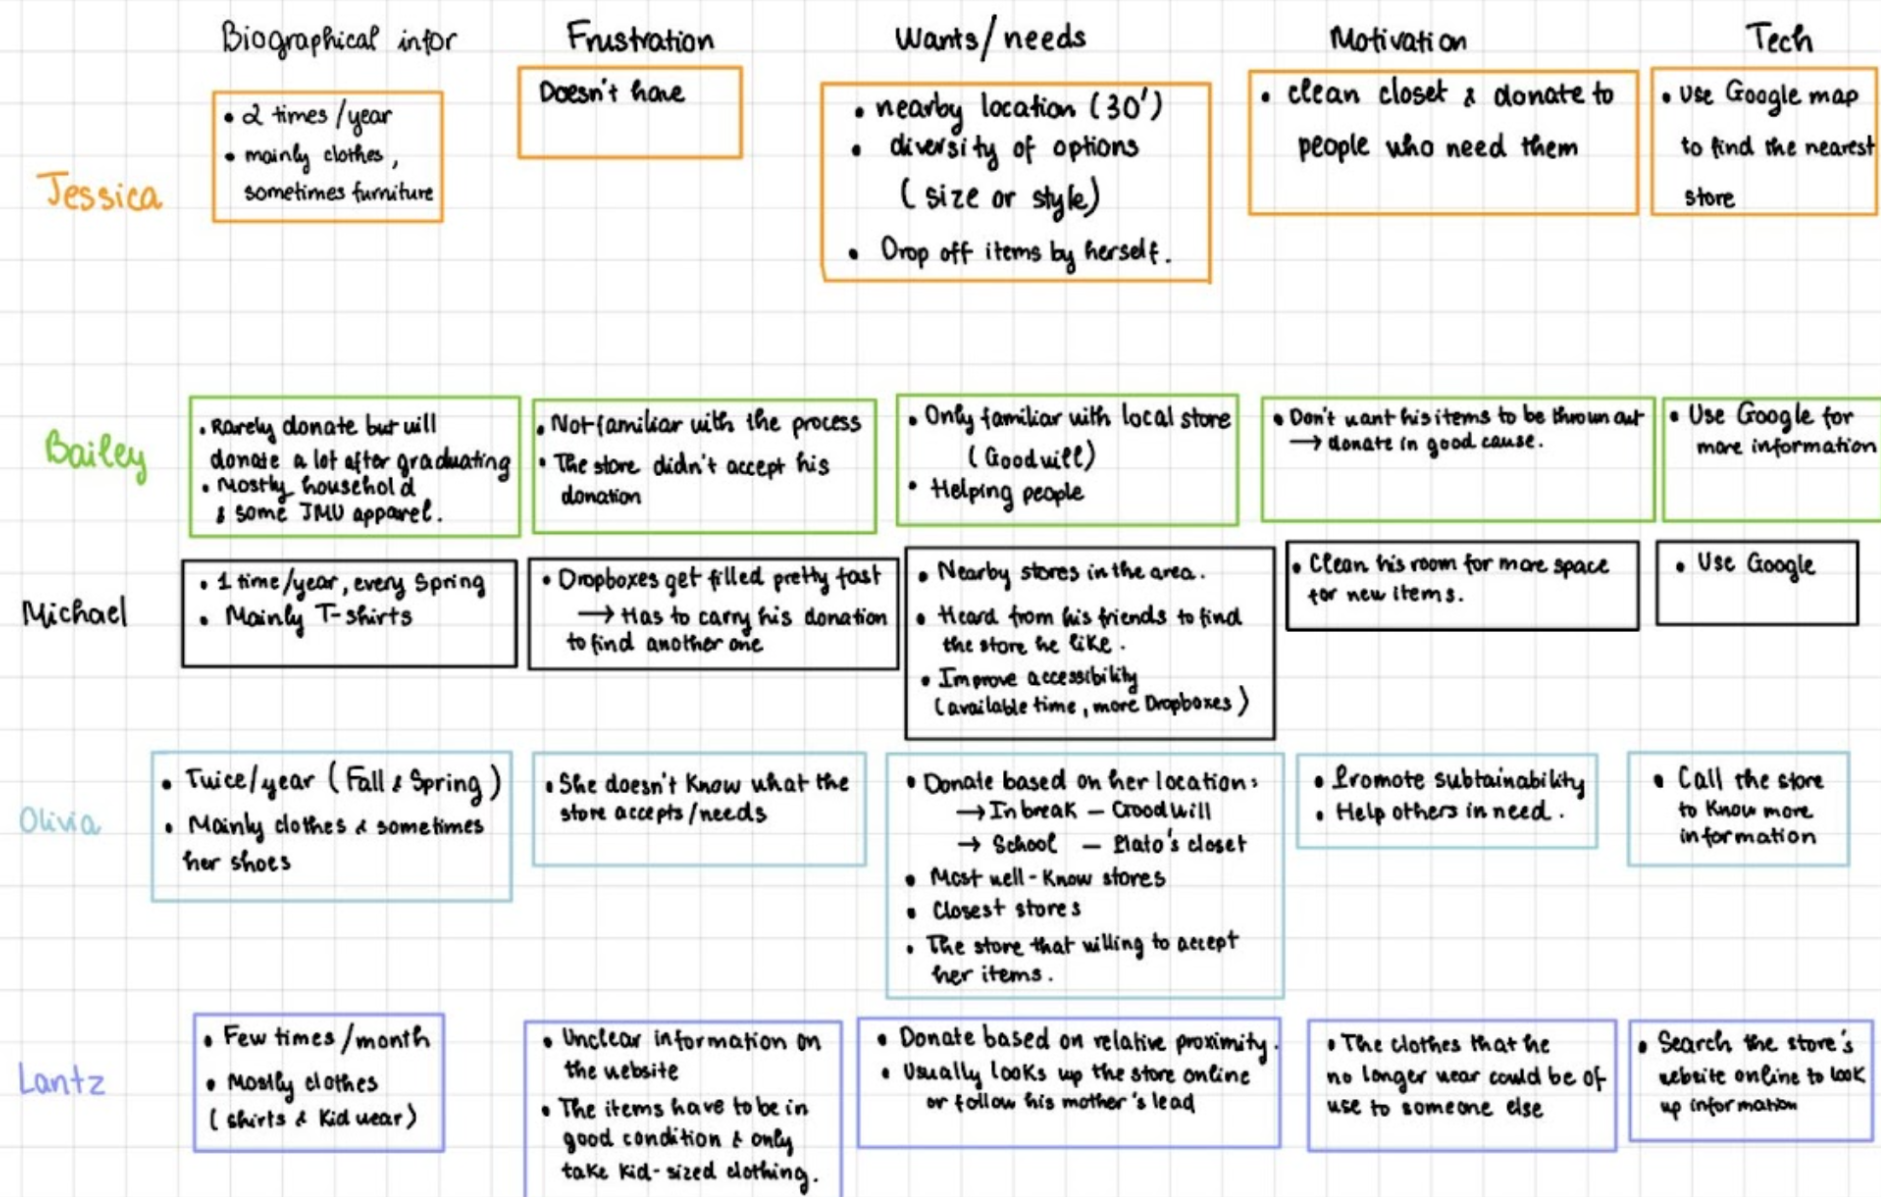 Biographical infor
Frustration
Wants/needs
Motivation
Tech
Jessica
• 2 times/year
• mainly clothes,
sometimes furniture
Doesn't have
• nearby location (30')
• diversity of options
(size or style)
• Drop off items by herself.
• clean closet & donate to
people who need them
• Use Google map
to find the nearest
store
Bailey
• Rarely donate but will
donate a lot after graduating
• Mostly household
& some JMU apparel.
• Not familiar with the process
• The store didn't accept his
donation
• Only familiar with local store
(Goodwill)
• Helping people
• Don't want his items to be thrown out
→ donate in good cause.
• Use Google for
more information
Michael
• 1 time/year, every Spring
• Mainly T-shirts
• Dropboxes get filled pretty fast
→ Has to carry his donation
to find another one
• Nearby stores in the area.
• Heard from his friends to find
the store he like.
• Improve accessibility
(available time, more Dropboxes)
• Clean his room for more space
for new items.
• Use Google
Olivia
• Twice/year (Fall & Spring)
• Mainly clothes & sometimes
her shoes
• She doesn't know what the
store accepts/needs
• Donate based on her location:
→ In break – Goodwill
→ School – Plato's closet
• Most well-know stores
• Closest stores
• The store that willing to accept
her items.
• Promote subtainability
• Help others in need.
• Call the store
to know more
information
Lantz
• Few times/month
• Mostly clothes
(shirts & kid wear)
• Unclear information on
the website
• The items have to be in
good condition & only
take kid-sized clothing.
• Donate based on relative proximity.
• Usually looks up the store online
or follow his mother's lead
• The clothes that he
no longer wear could be of
use to someone else
• Search the store's
website online to look
up information